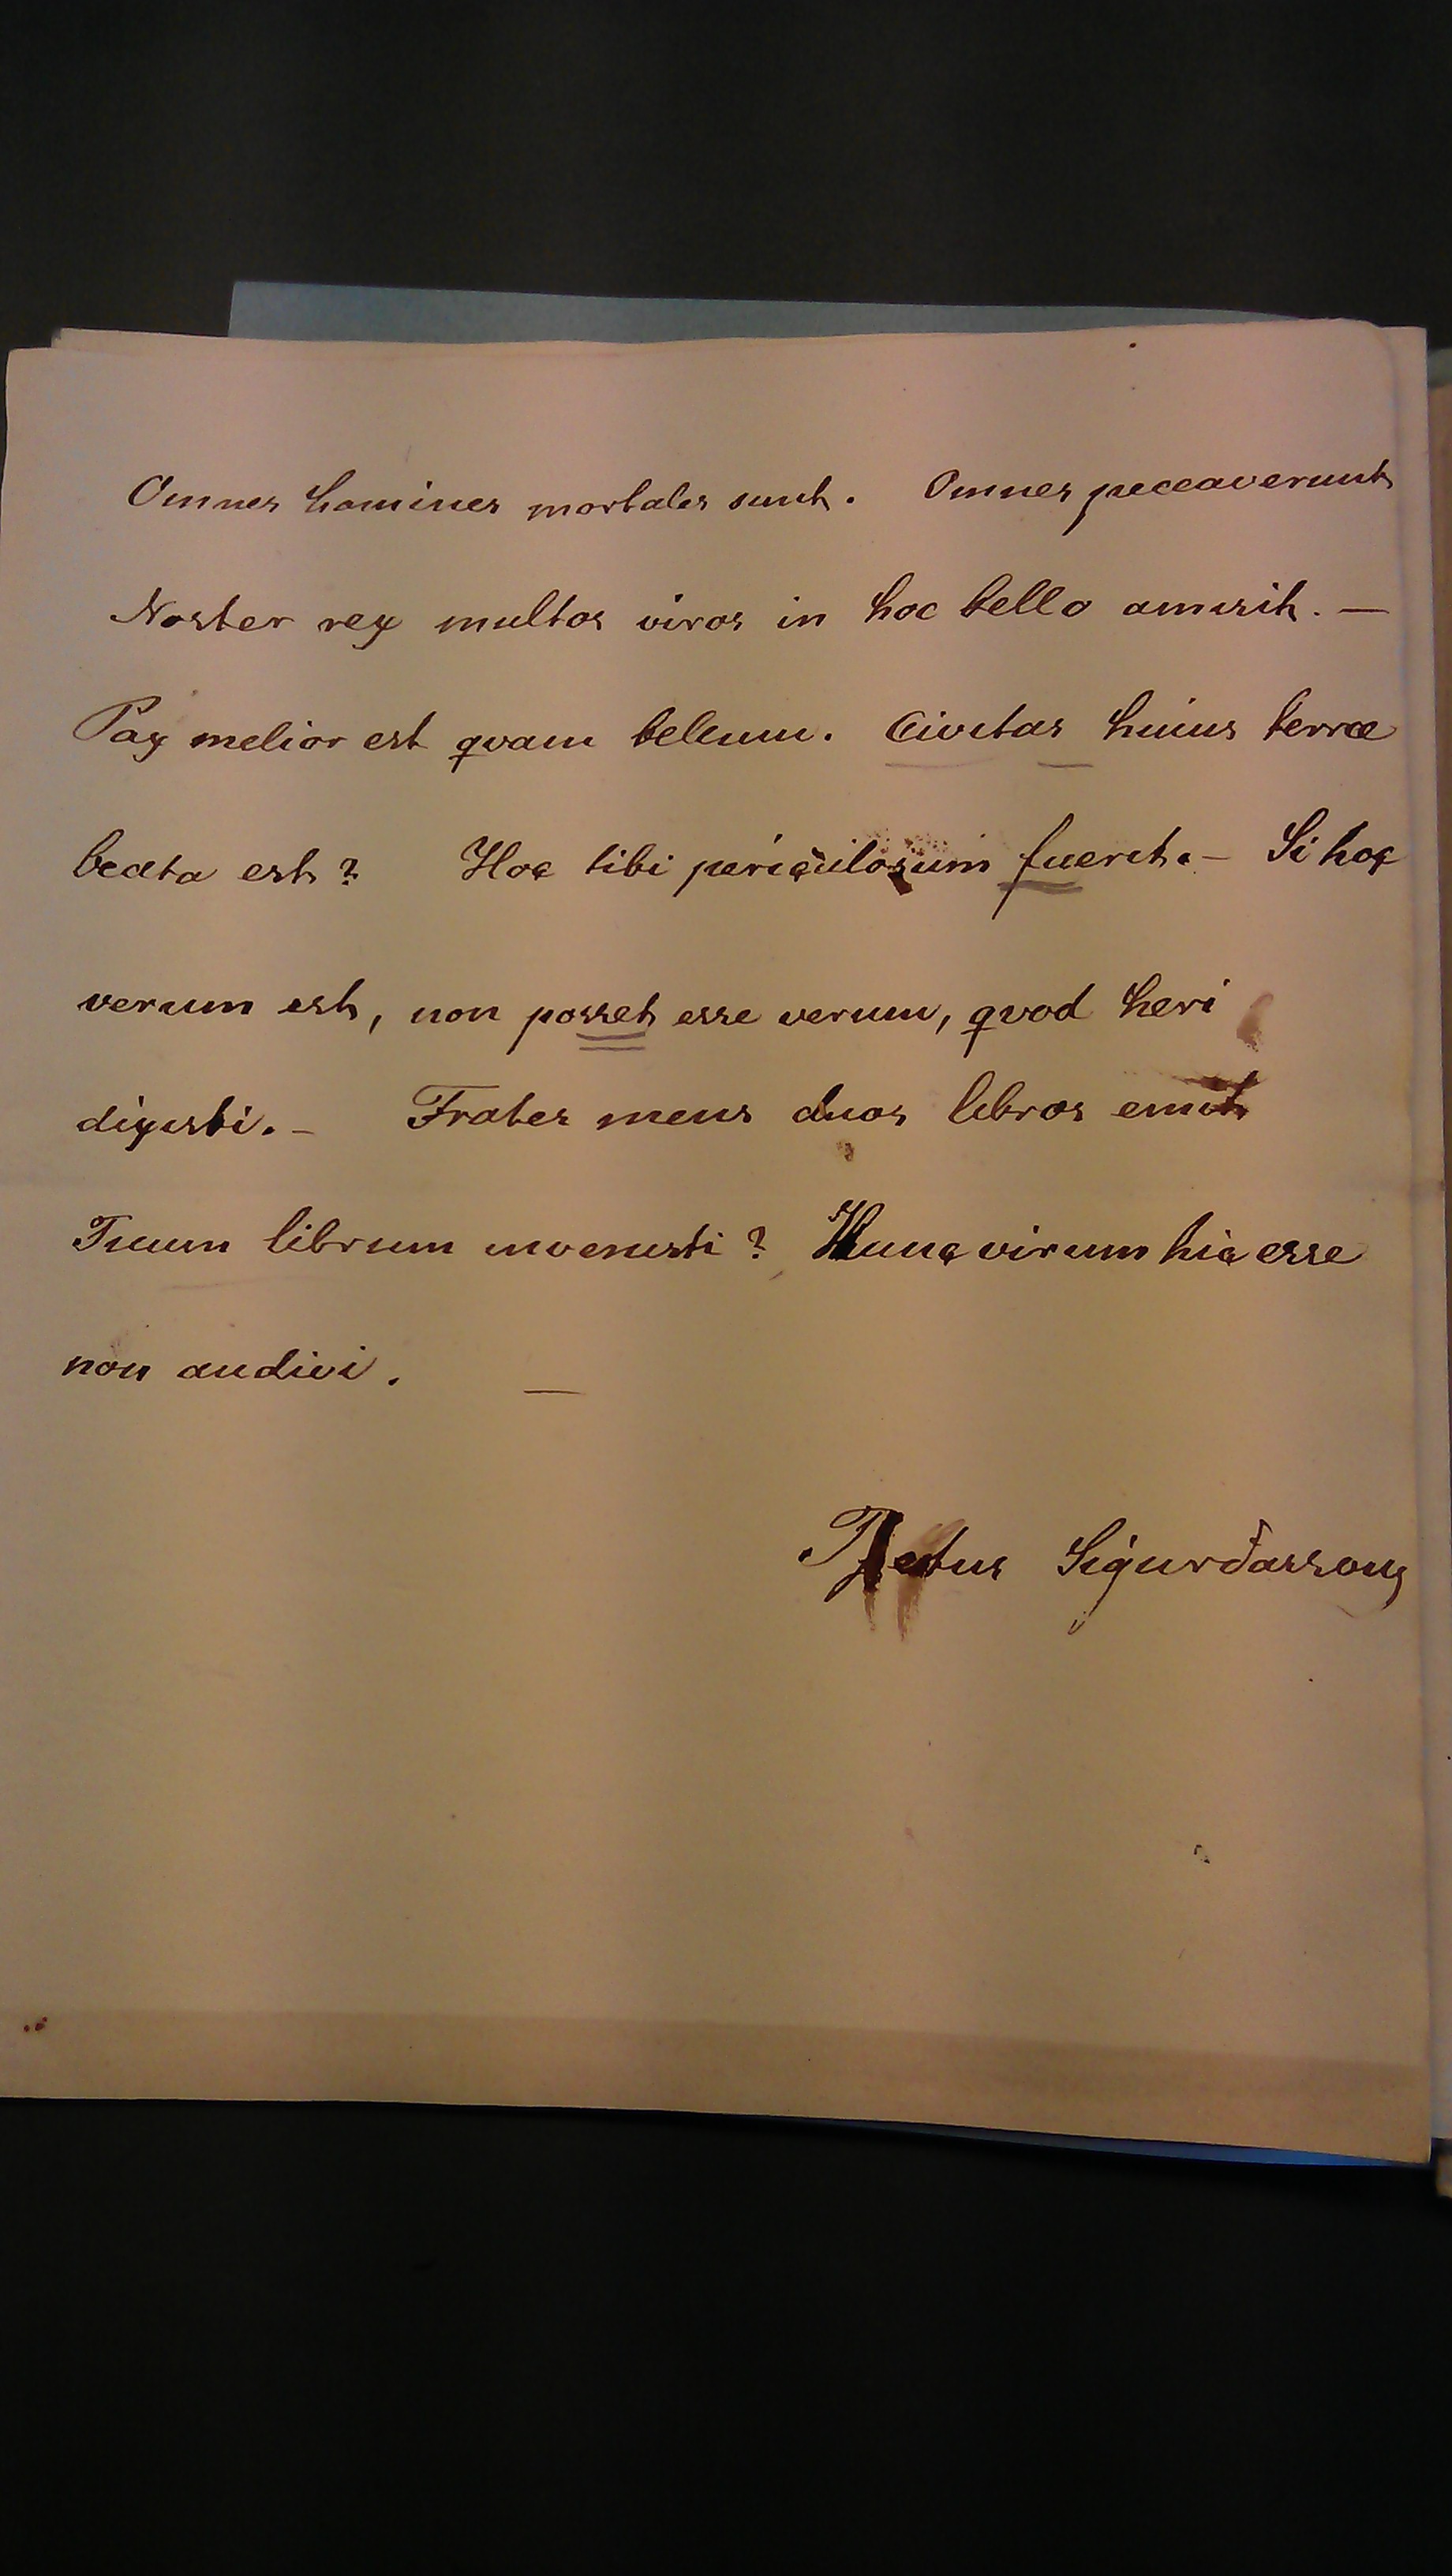 Omnes homines mortales sunt. Omnes peccaverunt
Noster rex multos viros in hoc bello amisit. —
Pax melior est qvam bellum. Civitas huius terræ
beata est? Hoc tibi periculosum fuerit. — Si hoc
verum est, non posset esse verum, qvod heri
dixisti. — Frater meus duos libros emit
Tuum librum invenisti? Hunc virum hic esse
non audivi. —
Sigurðarsson